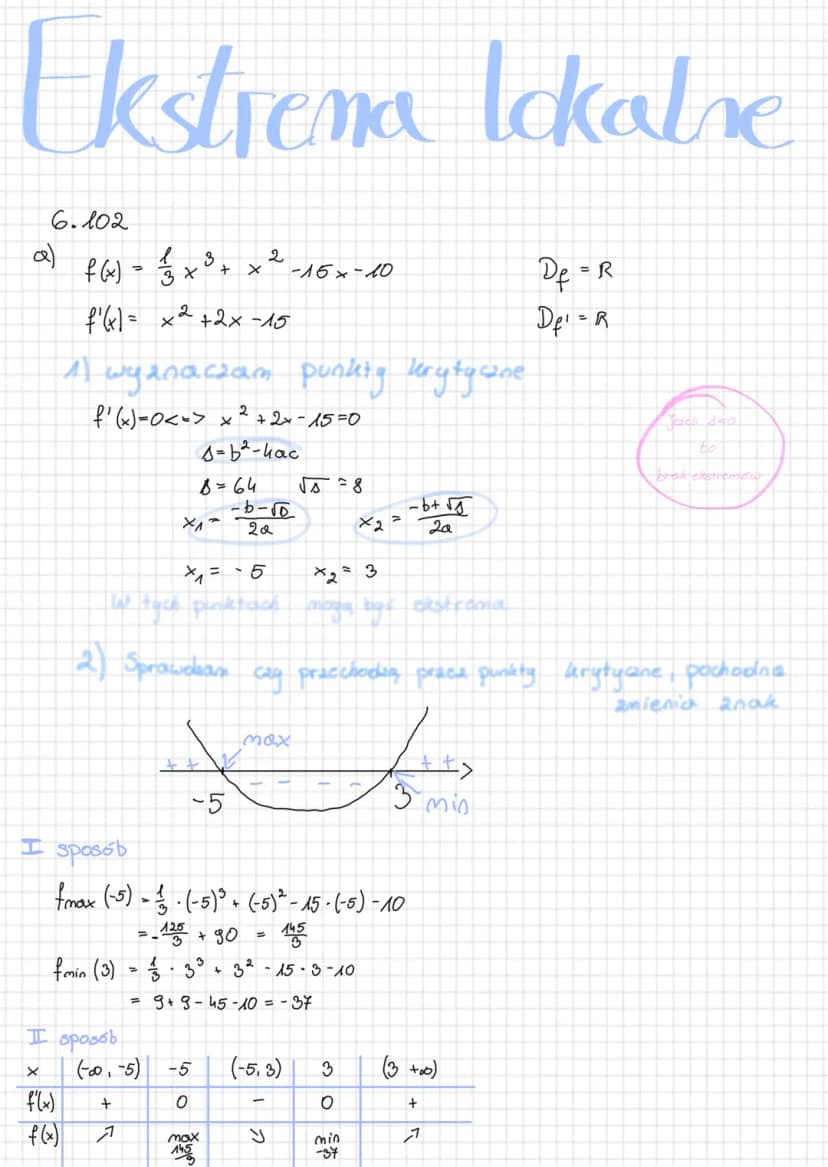 Ekstrema lokalne
6.102
a) f(x) = 1/3 x³ + x² - 15x - 10    D_f = R
f'(x) = x² + 2x - 15    D_f' = R
1) wyznaczam punkty krytyczne
f'(x)=0 <=> x² + 2x - 15 = 0
Δ = b² - 4ac
Δ = 64    √Δ = 8
x₁ = (-b-√Δ)/2a    x₂ = (-b+√Δ)/2a
x₁ = -5    x₂ = 3
jeśli Δ≤0
to
brak ekstremów
W tych punktach mogą być ekstrema
2) Sprawdzam czy przechodząc przez punkty krytyczne, pochodna
zmienia znak
max
+ +    + +
- - - -
-5    3    min
I sposób
fmax (-5) = 1/3 · (-5)³ + (-5)² - 15 · (-5) - 10
= -125/3 + 90 = 145/3
fmin (3) = 1/3 · 3³ + 3² - 15 · 3 - 10
= 9 + 9 - 45 - 10 = -37
II sposób
x    (-∞, -5)    -5    (-5, 3)    3    (3 +∞)
f'(x)    +    0    -    0    +
f(x)    ↗    max 145/3    ↘    min -37    ↗